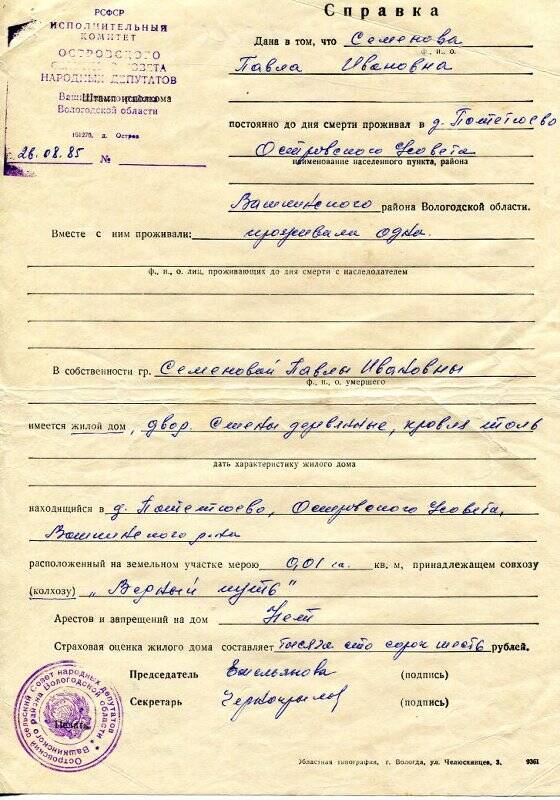 РСФСР
ИСПОЛНИТЕЛЬНЫЙ
КОМИТЕТ
ОСТРОВСКОГО
СОВЕТА
НАРОДНЫХ ДЕПУТАТОВ
Штамп исполкома
Вологодской области
д. Остров
26.08.85 №
Справка
Дана в том, что Семенова
ф., и., о.
Павла Ивановна
постоянно до дня смерти проживал в д.
Островского с/совета
наименование населенного пункта, района
Вашкинского района Вологодской области.
Вместе с ним проживали: проживала одна.
ф., и., о. лиц, проживающих до дня смерти с наследодателем
В собственности гр. Семеновой Павлы Ивановны
ф., и., о. умершего
имеется жилой дом, двор. Стены деревянные, кровля толь
дать характеристику жилого дома
находящийся в д. Островского с/совета,
Вашкинского р-на
расположенный на земельном участке мерою 0,01 га. кв. м, принадлежащем совхозу
(колхозу) „Верный путь"
Арестов и запрещений на дом нет
Страховая оценка жилого дома составляет тысяча сто сорок шесть рублей.
Председатель Емельянова (подпись)
Секретарь (подпись)
Печать
Островский сельский Совет народных депутатов
Вашкинского района Вологодской области
Областная типография, г. Вологда, ул. Челюскинцев, 3. 9361